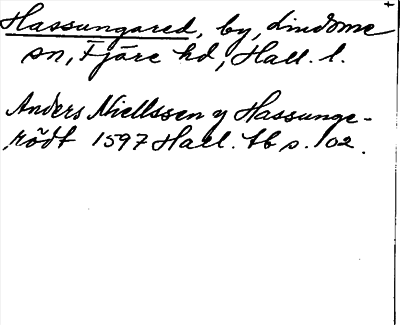 Hassungared, by, Lindome
sn, Fjäre hd, Hall. l.
Anders Niellssen y Hassunge-
rödt 1597 Hall. tb s. 102.